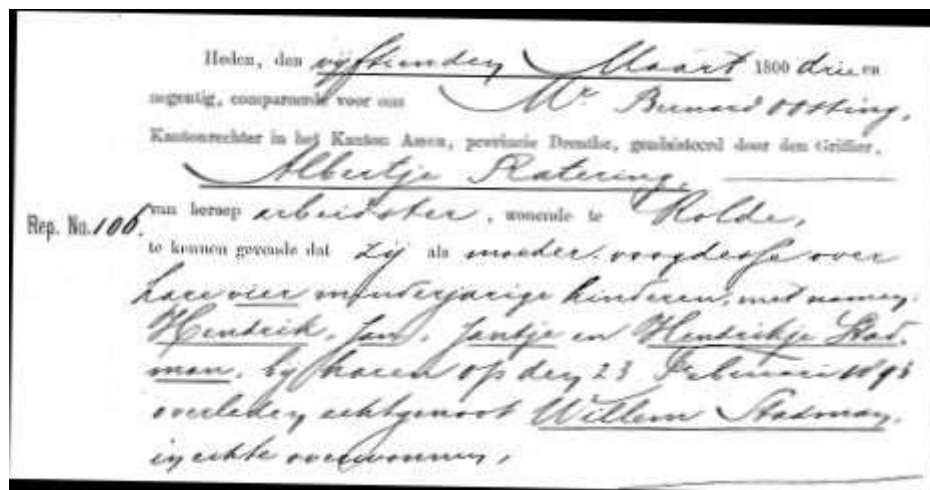 Heden, den vijftienden Maart 1800 drie en
negentig, compareerde voor ons Mr. Bernard Oosting,
Kantonrechter in het Kanton Assen, provincie Drenthe, geadsisteerd door den Griffier,
Albertje Katering,
van beroep arbeidster, wonende te Rolde,
Rep. No. 106.
te kennen gevende dat zij als moeder-voogdesse over
hare vier minderjarige kinderen, met namen:
Hendrik, Jan, Jantje en Hendrikje Stad-
man, bij haren op den 23 Februari 1893
overleden echtgenoot Willem Stadman,
in echte overwonnen,